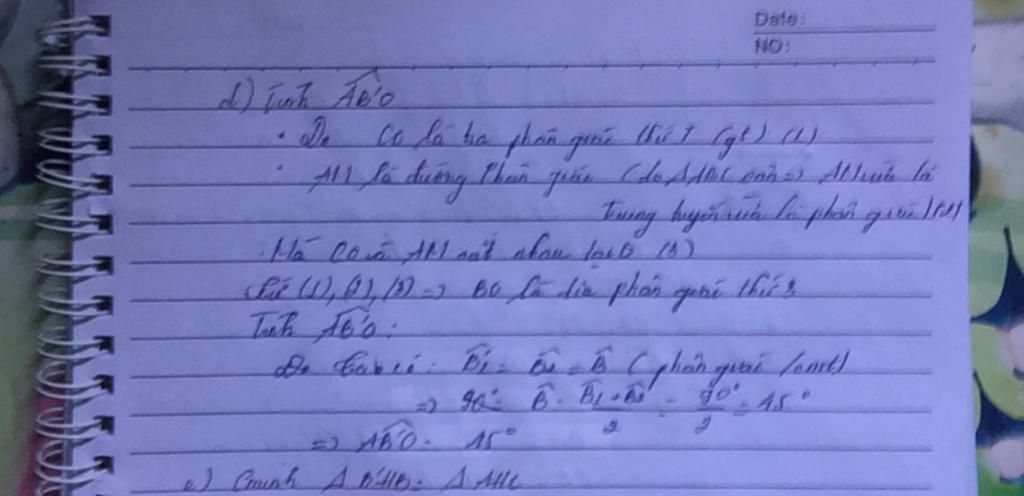 Date:
NO:
d) Tính ABO
• Do CO là tia phân giác thứ 1 (gt) (1)
• AM là đường phân giác (do ΔABC cân => AM vừa là
trung tuyến vừa là phân giác) (2)
Mà CO và AM cắt nhau tại O (3)
Từ (1), (2), (3) => BO là tia phân giác thứ 3
Tính ABO:
Do ta có: B1 = B2 = B (phân giác /cmt)
=> 90° B = B1 + B2 / 2 = 90° / 2 = 45°
=> ABO = 45°
e) Cminh Δ = Δ